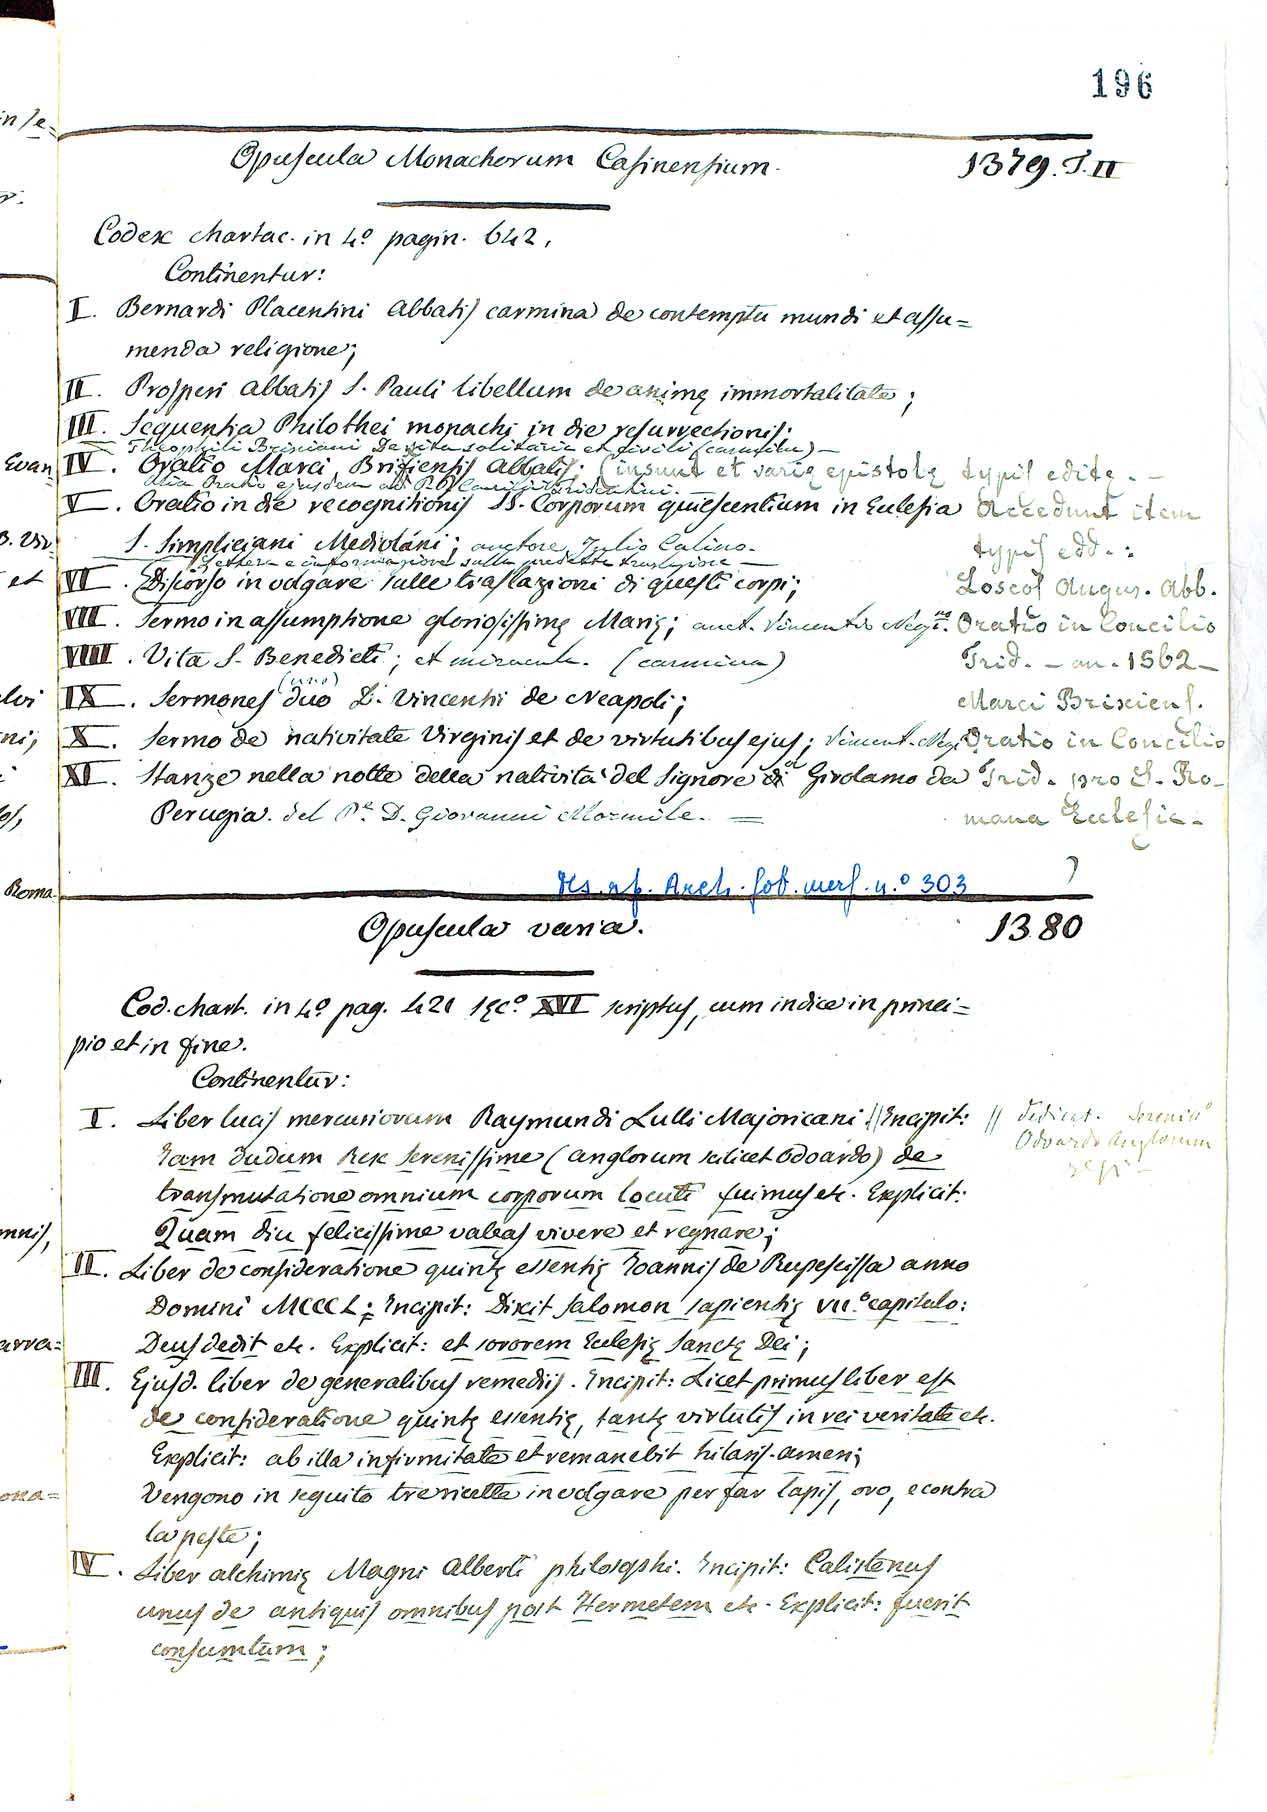 196
Opuscula Monachorum Casinensium. 1379. T. II
Codex chartac. in 4.º pagin. 642,
Continentur:
I. Bernardi Placentini Abbatis carmina de contemptu mundi et assu=
menda religione;
II. Prosperi Abbatis S. Pauli libellum de animę immortalitate;
III. Sequentia Philothei monachi in die resurrectionis;
Theophili Brixiani De vita solitaria et civili (carmina) —
IV. Oratio Marci Brixiensis Abbatis; (insunt et varię epistolę typis editę. —
Alia Oratio ejusdem ad P.P. Concilii Tridentini. —
V. Oratio in die recognitionis SS. Corporum quiescentium in Eclesia
S. Simpliciani Mediolani; auctore Julio Calino.
Lettera e informazione sulla predetta traslazione —
VI. Discorso in volgare sulle traslazioni di questi corpi;
VII. Sermo in assumptione gloriosissimę Marię; auct. Vincentio
VIII. Vita S. Benedicti; et miracula. (carmina)
(uno)
IX. Sermones duo D. Vincentii de Neapoli;
X. Sermo de nativitate Virginis et de virtutibus ejus; Vincent.
XI. Stanze nella notte della natività del Signore di Girolamo da
Perugia. del P.e D. Giovanni Mormile. =
Accedunt item
typis edd.:
Loscos Augus. Abb.
Oratio in Concilio
Trid. — an. 1562 —
Marci Brixiens.
Oratio in Concilio
Trid. pro S. Ro-
mana Eclesia.
Arch. n.º 303
Opuscula varia. 1380
Cod. chart. in 4.º pag. 421 sęc.º XVI scriptus, cum indice in princi=
pio et in fine.
Continentur:
I. Liber lucis mercuriorum Raymundi Lulli Majoricani // Encipit:
Iam dudum Rex Serenissime (anglorum scilicet Odoardo) de
transmutatione omnium corporum locuti fuimus etc. Explicit:
Quam diu felicissime valeas vivere et regnare;
// dedicat. Serenis.º
Odoardo Anglorum
regi —
II. Liber de consideratione quintę essentię Ioannis de Rupescissa anno
Domini MCCCL; Encipit: Dixit Salomon sapientię VII.º capitulo:
Deus dedit etc. Explicit: et sororem Eclesię Sanctę Dei;
III. Ejusd. liber de generalibus remediis. Encipit: Licet primus liber est
de consideratione quintę essentię, tantę virtutis in rei veritate etc.
Explicit: ab illa infirmitate et remanebit hilaris. amen;
Vengono in seguito tre ricette in volgare per far lapis, oro, e contra
la peste;
IV. Liber alchimię Magni Alberti philosophi. Encipit: Calistenus
unus de antiquis omnibus post Hermetem etc. Explicit: fuerit
consumtum;